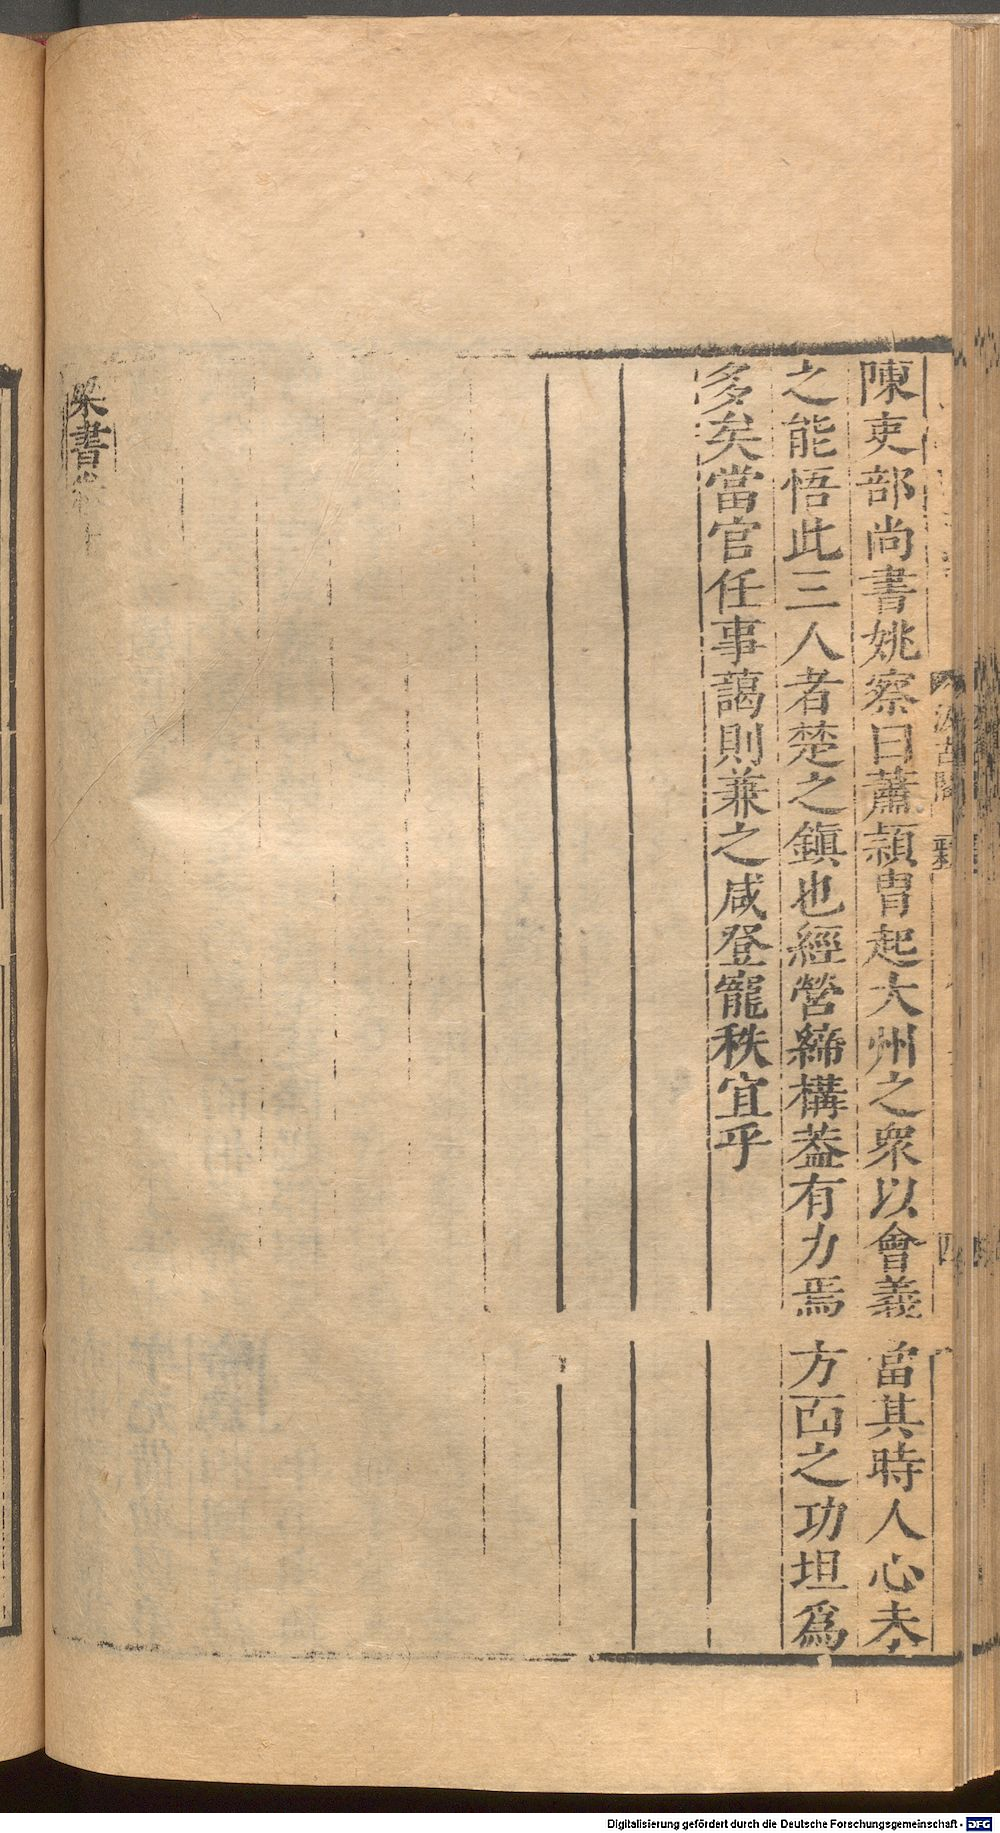 陳吏部尚書姚察曰蕭穎冑起大州之衆以會義當其時人心未
之能悟此三人者楚之鎮也經營締構葢有力焉方面之功坦爲
多矣當官任事藹則兼之咸登寵秩宜乎
梁書卷十
汲古閣
四
Digitalisierung gefördert durch die Deutsche Forschungsgemeinschaft - DFG